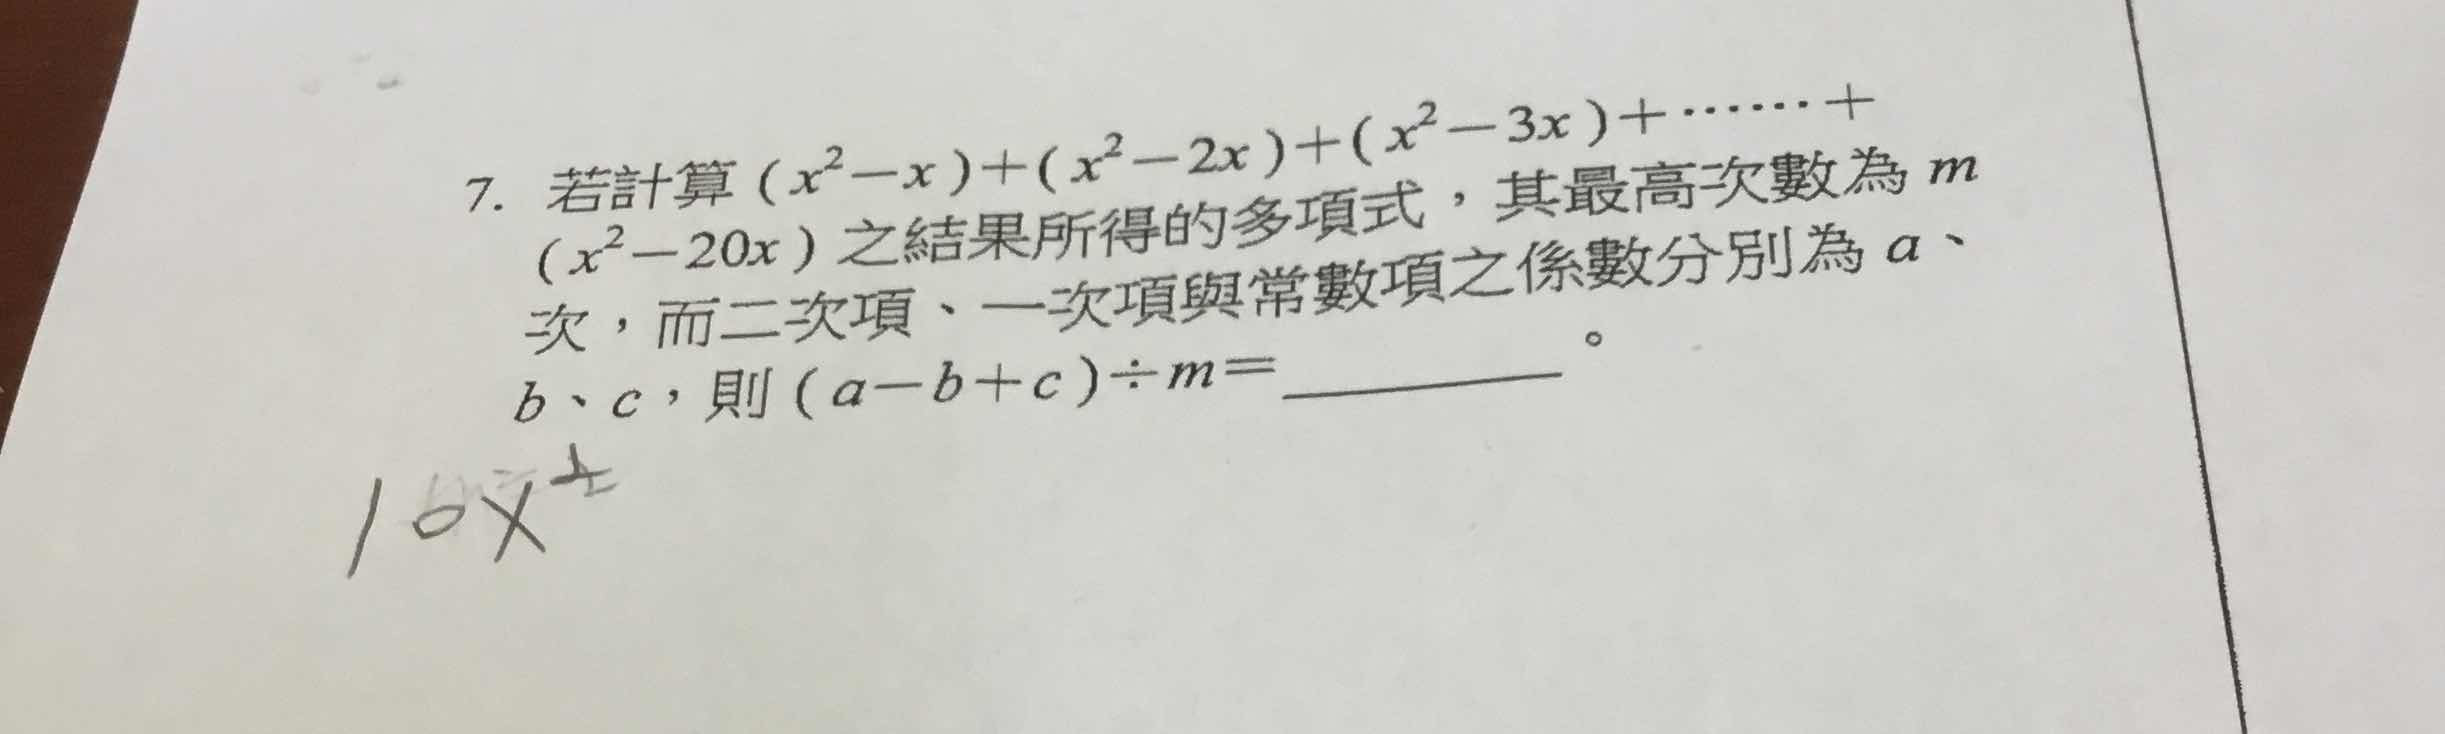 7. 若計算 ( x²－x )＋( x²－2x )＋( x²－3x )＋⋯⋯＋
( x²－20x ) 之結果所得的多項式，其最高次數為 m
次，而二次項、一次項與常數項之係數分別為 a、
b、c，則 ( a－b＋c )÷m＝________。
10x